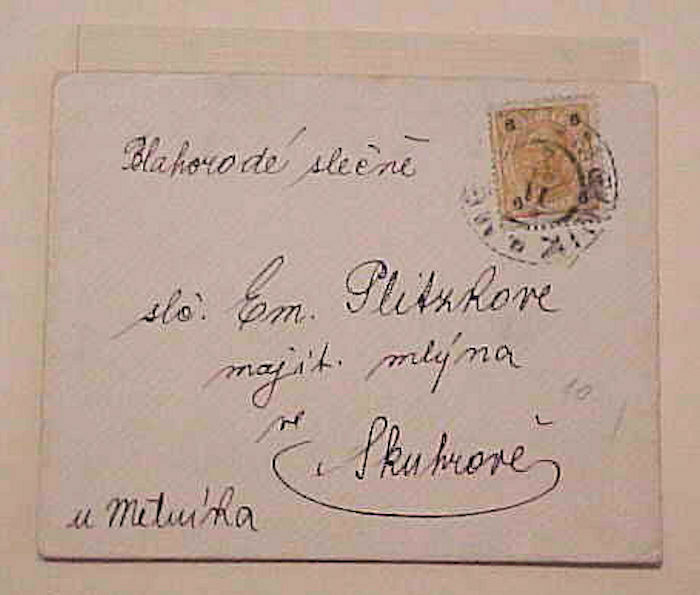 Blahorodé slečně
slč. Em. Plitzkove
majit. mlýna
ve
Skuhrově
u Mělníka
6 6
6 6
10